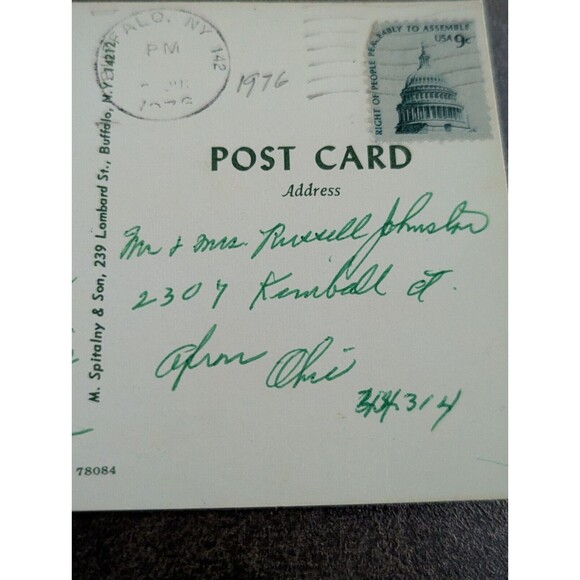 BUFFALO, NY 142
PM
1976
1976
RIGHT OF PEOPLE PEACEABLY TO ASSEMBLE
USA 9c
POST CARD
Address
Mr & Mrs. Russell Johnston
2307 Kimball Ct.
Akron Ohio
44314
M. Spitalny & Son, 239 Lombard St., Buffalo, N.Y. 14212
78084